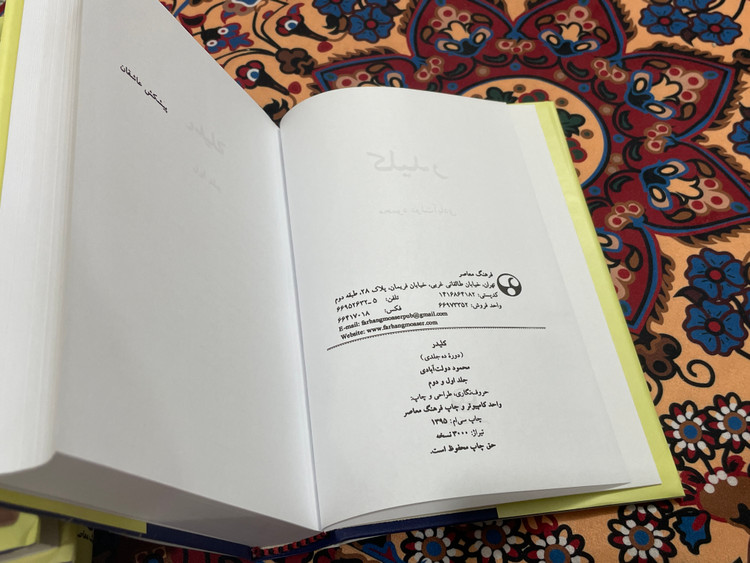 پیشکش عاشقان
کلیدر
محمود دولت‌آبادی
فرهنگ معاصر
تهران، خیابان طالقانی غربی، خیابان فریمان، پلاک ۲۸، طبقه دوم
کدپستی: ۱۴۱۶۸۶۴۱۸۲ تلفن: ۵-۶۶۹۵۲۶۳۲
واحد فروش: ۶۶۹۷۳۳۵۲ فکس: ۶۶۴۱۷۰۱۸
E-mail: farhangmosserpub@gmail.com
Website: www.farhangmosser.com
کلیدر
(دورهٔ ده جلدی)
محمود دولت‌آبادی
جلد اول و دوم
حروف‌نگاری، طراحی و چاپ:
واحد کامپیوتر و چاپ فرهنگ معاصر
چاپ سی‌ام: ۱۳۹۵
تیراژ: ۳۰۰۰ نسخه
حق چاپ محفوظ است.